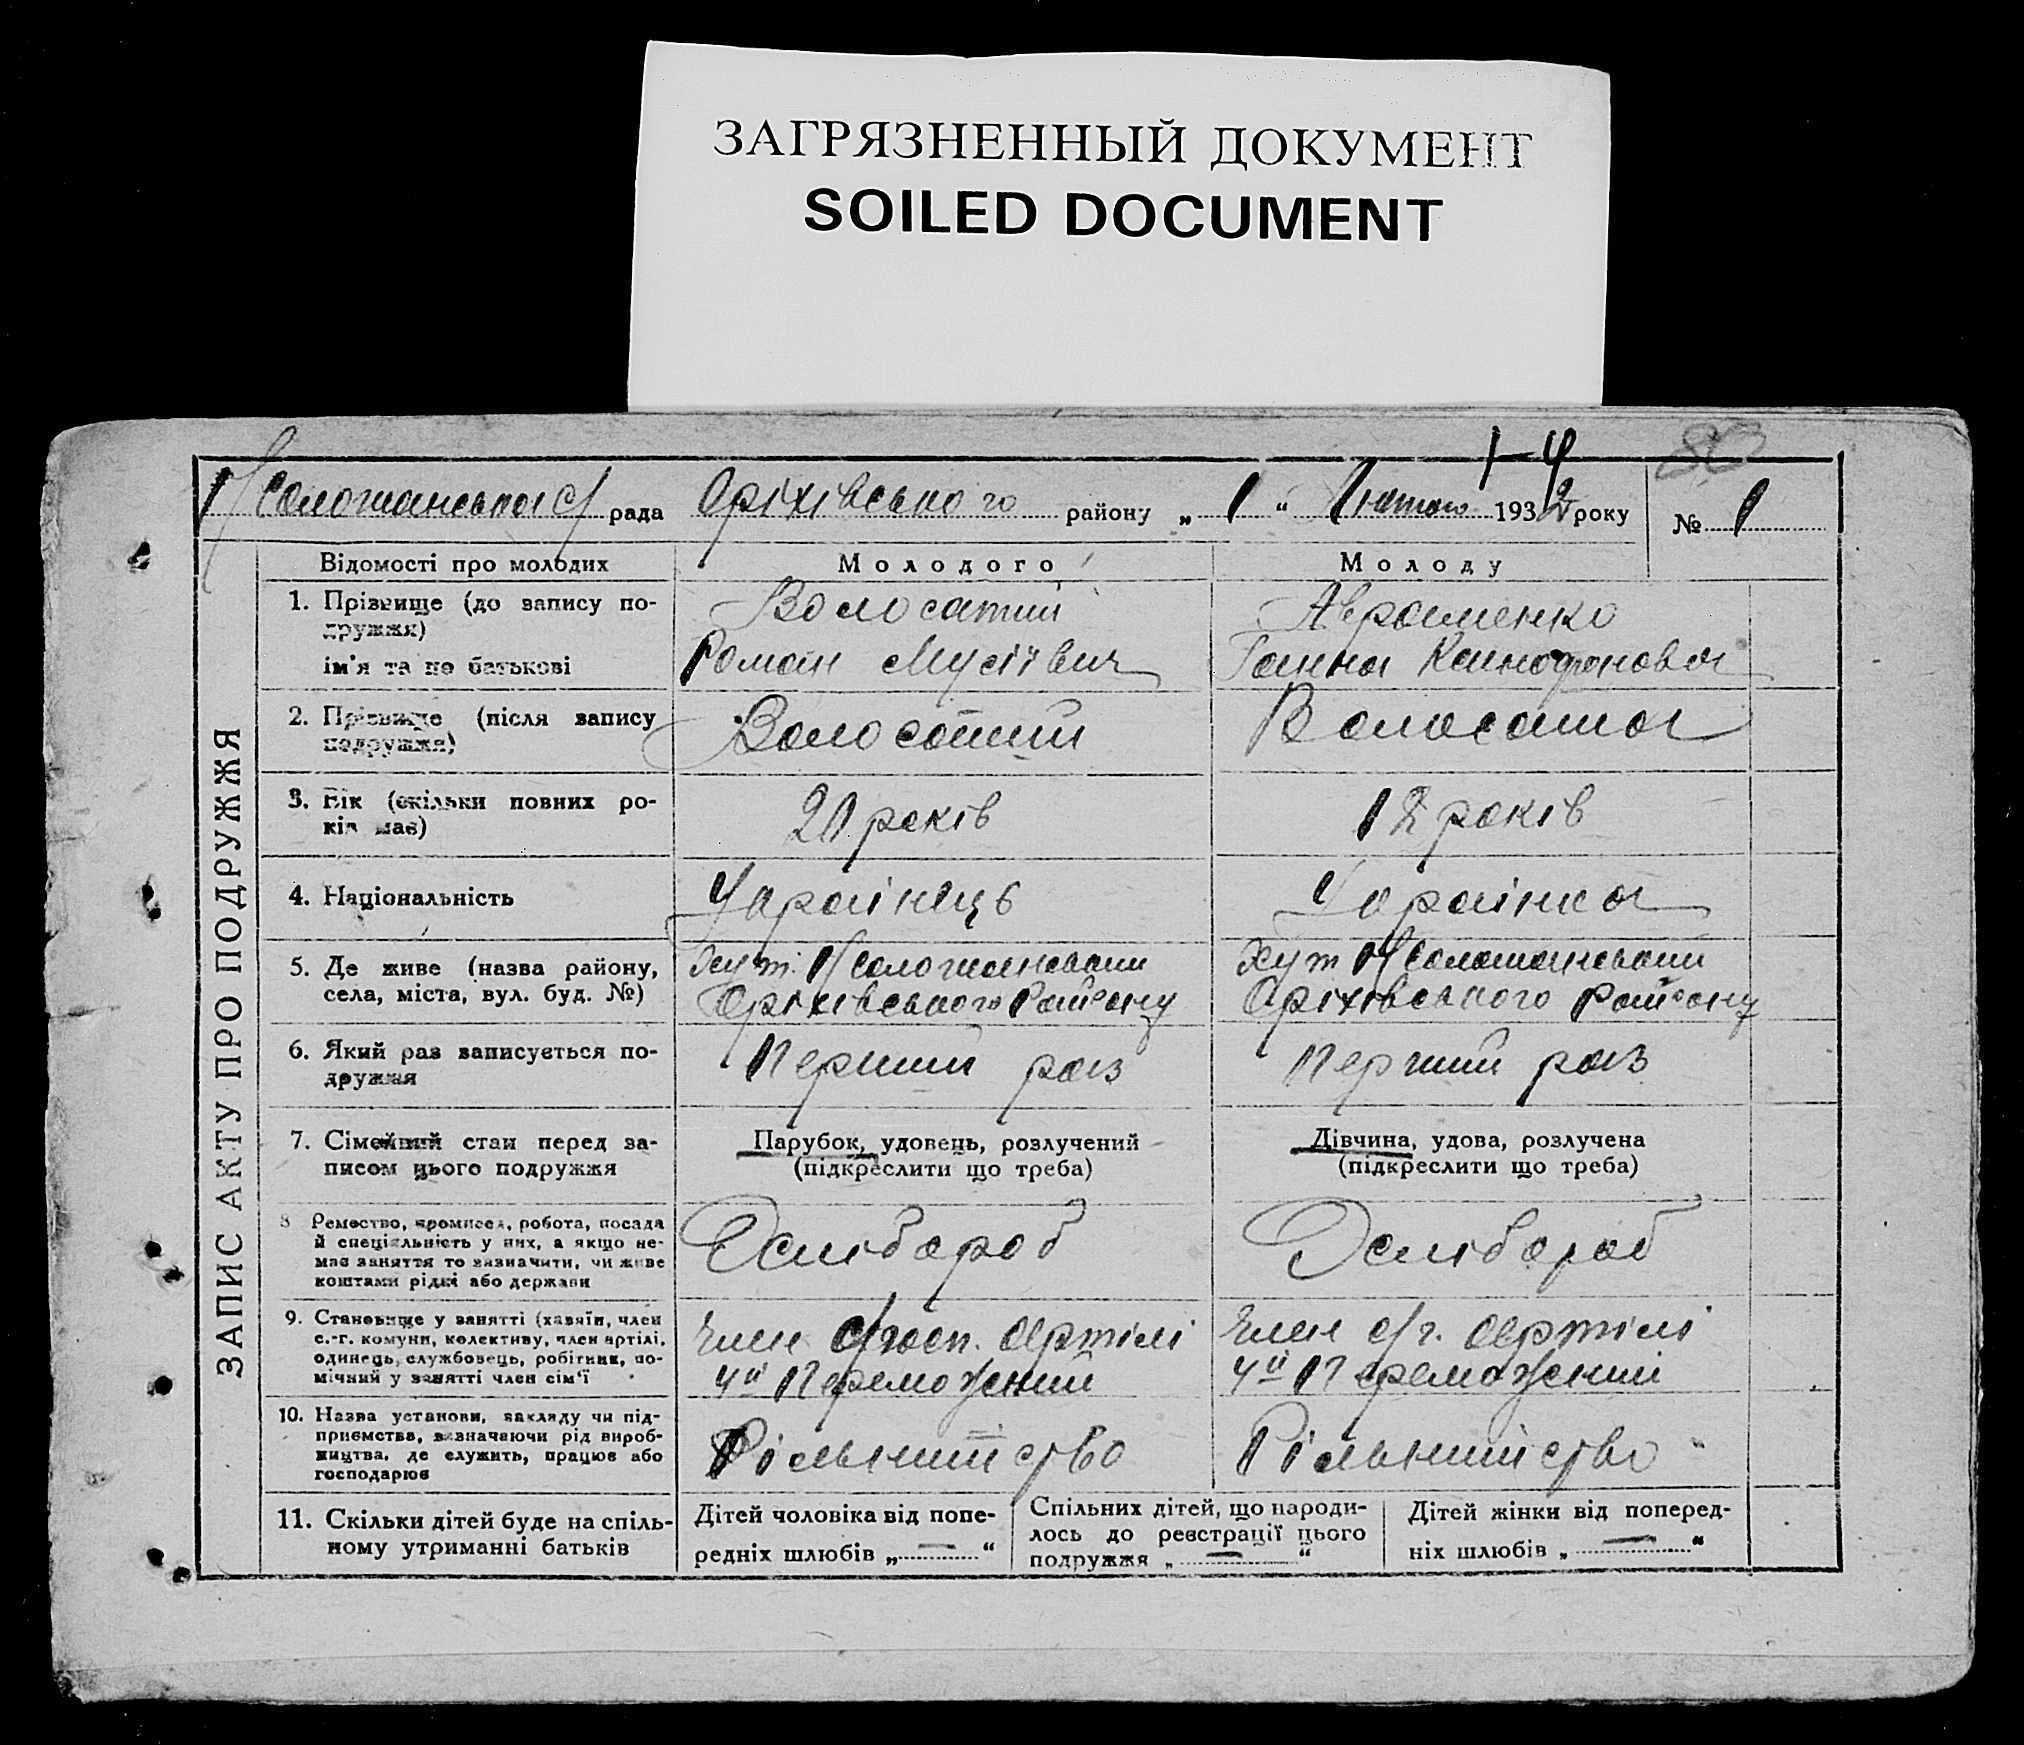 ЗАГРЯЗНЕННЫЙ ДОКУМЕНТ
SOILED DOCUMENT
1-4
рада Оріхівського району „ 1 “ Лютого 1932 року № 1
ЗАПИС АКТУ ПРО ПОДРУЖЖЯ
Відомості про молодих
Молодого
Молоду
1. Прізвище (до запису по-
дружжя)
ім'я та по батькові
Волосатий
Роман Мусієвич
Авраменко
Ганна Ксинофоновна
2. Прізвище (після запису
подружжя)
Волосатий
Волосатоя
3. Вік (скільки повних ро-
ків має)
20 років
18 років
4. Національність
Українець
Українка
5. Де живе (назва району,
села, міста, вул. буд. №)
Хут.
Оріхівського Району
Хут
Оріхівського Району
6. Який раз записується по-
дружжя
Перший раз
Перший раз
7. Сімейний стан перед за-
писом цього подружжя
Парубок, удовець, розлучений
(підкреслити що треба)
Дівчина, удова, розлучена
(підкреслити що треба)
8 Ремество, промисел, робота, посада
й спеціяльність у них, а якщо не-
має заняття то зазначити, чи живе
коштами рідні або держави
Хлібороб
Хлібороб
9. Становище у занятті (хазяїн, член
с.-г. комуни, колективу, член артілі,
одинець, службовець, робітник, по-
мічний у занятті член сім'ї
член с/госп. Артілі
4й Переможний
Член с/г. Артілі
4й Переможний
10. Назва установи, закладу чи під-
приємства, визначаючи рід вироб-
жицтва, де служить, працює або
господарює
Рільництво
Рільництво
11. Скільки дітей буде на спіль-
ному утриманні батьків
Дітей чоловіка від попе-
редніх шлюбів „ — “
Спільних дітей, що народи-
лось до реєстрації цього
подружжя „ — “
Дітей жінки від поперед-
ніх шлюбів „ — “